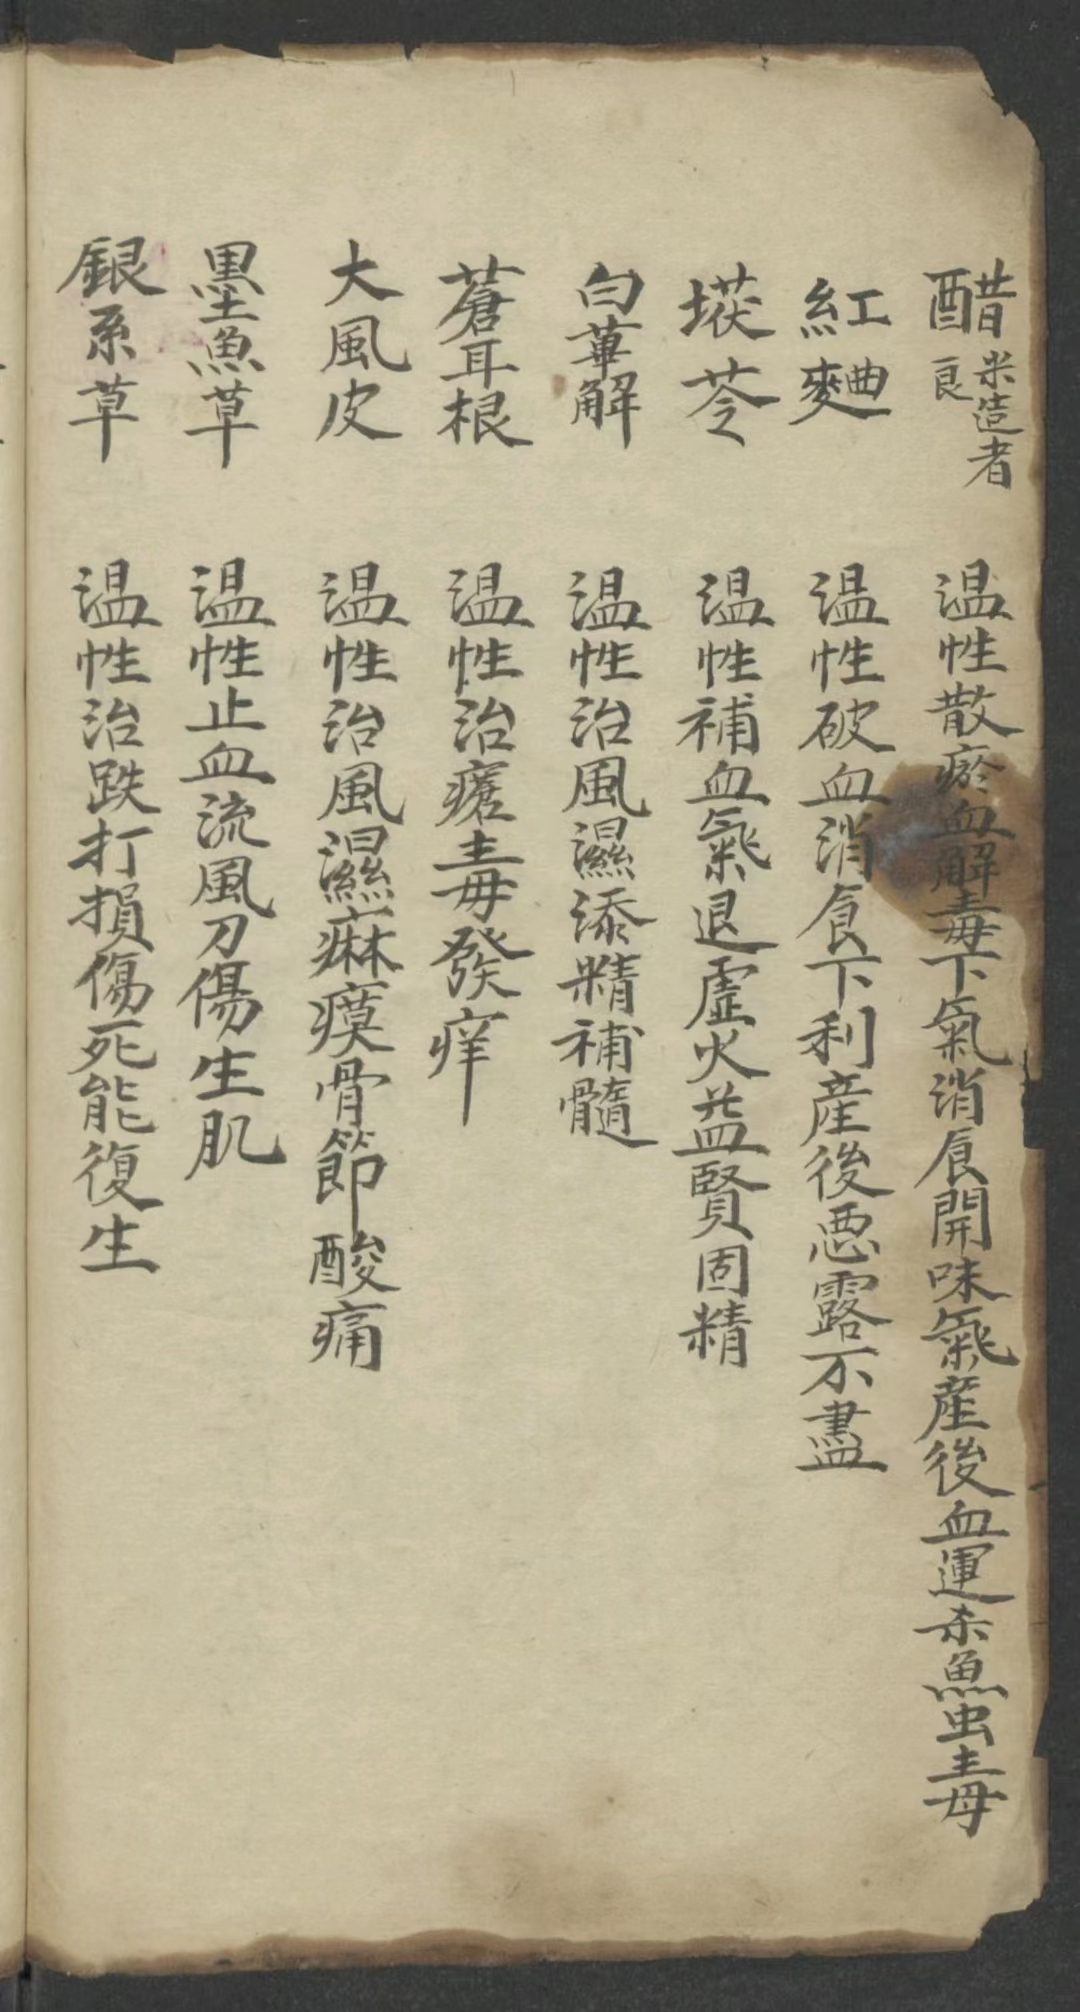 醋米造者良 温性散瘀血解毒下氣消食開味氣產後血運杀魚虫毒
紅麯 温性破血消食下利產後惡露不盡
茯苓 温性補血氣退虛火益賢固精
白萆解 温性治風濕添精補髓
蒼耳根 温性治瘡毒發痒
大風皮 温性治風濕痳瘼骨節酸痛
墨魚草 温性止血流風刀傷生肌
銀系草 温性治跌打損傷死能復生